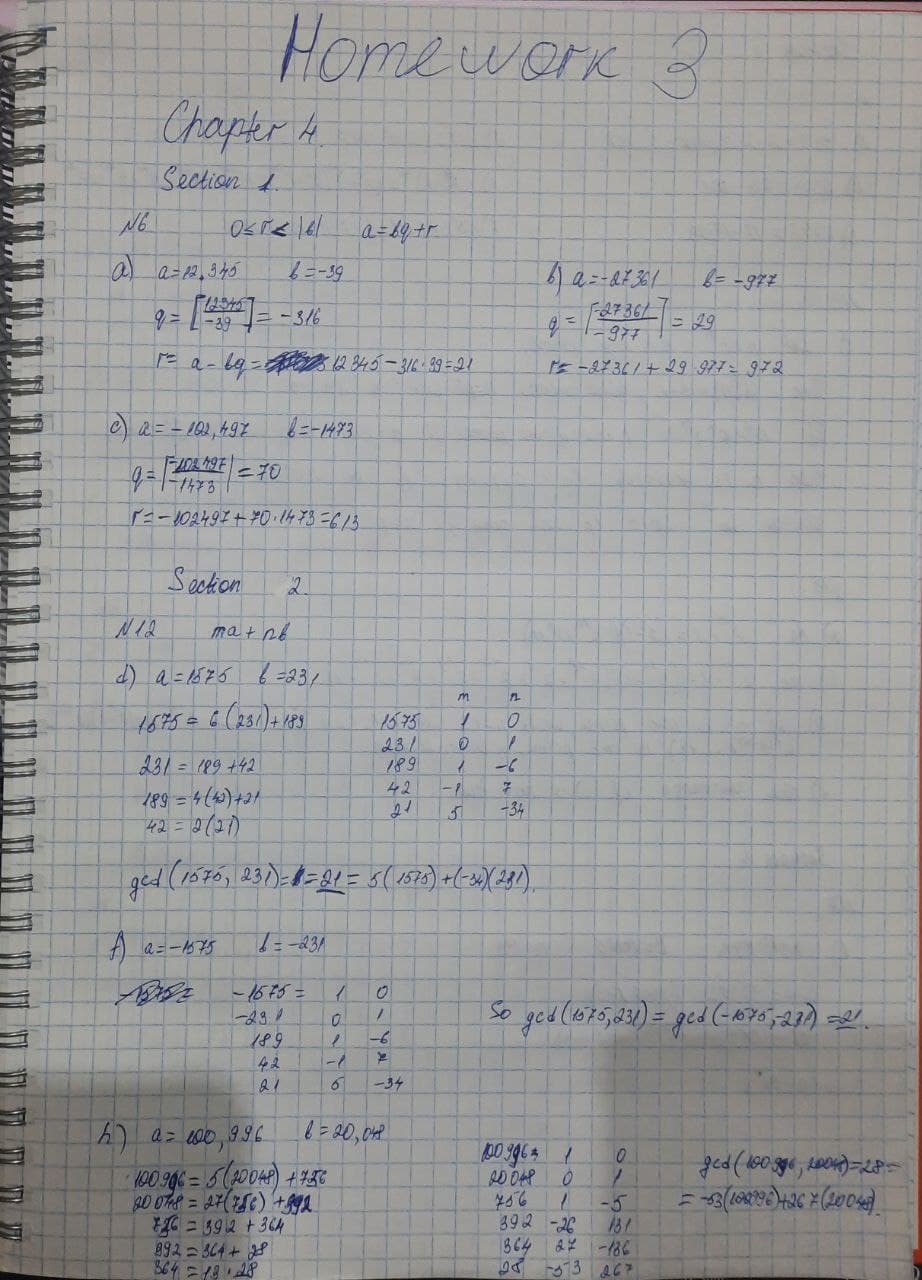 Homework 3
Chapter 4.
Section 1.
N6 0≤r<|b| a=bq+r
a) a=12,345 b=-39
q=⌈12345/-39⌉=-316
r= a-bq= 12345-316·39=21
b) a=-27361 b=-977
q=⌈-27361/-977⌉=29
r=-27361+29·977=972
c) a=-102,497 b=-1473
q=⌈-102497/-1473⌉=70
r=-102497+70·1473=613
Section 2.
N12 ma+nb
d) a=1575 b=231
1575=6(231)+189
231=189+42
189=4(42)+21
42=2(21)
m n
1575 1 0
231 0 1
189 1 -6
42 -1 7
21 5 -34
gcd(1575, 231)= =21=5(1575)+(-34)(231).
f) a=-1575 b=-231
-1575= 1 0
-231 0 1
189 1 -6
42 -1 7
21 5 -34
So gcd(1575,231)=gcd(-1575,-231)=21.
h) a=100,996 b=20,048
100996=5(20048)+756
20048=27(756)+392
756=392+364
392=364+28
364=13·28
100996 1 0
20048 0 1
756 1 -5
392 -26 131
364 27 -136
28 -53 267
gcd(100996, 20048)=28=
=-53(100996)+267(20048).